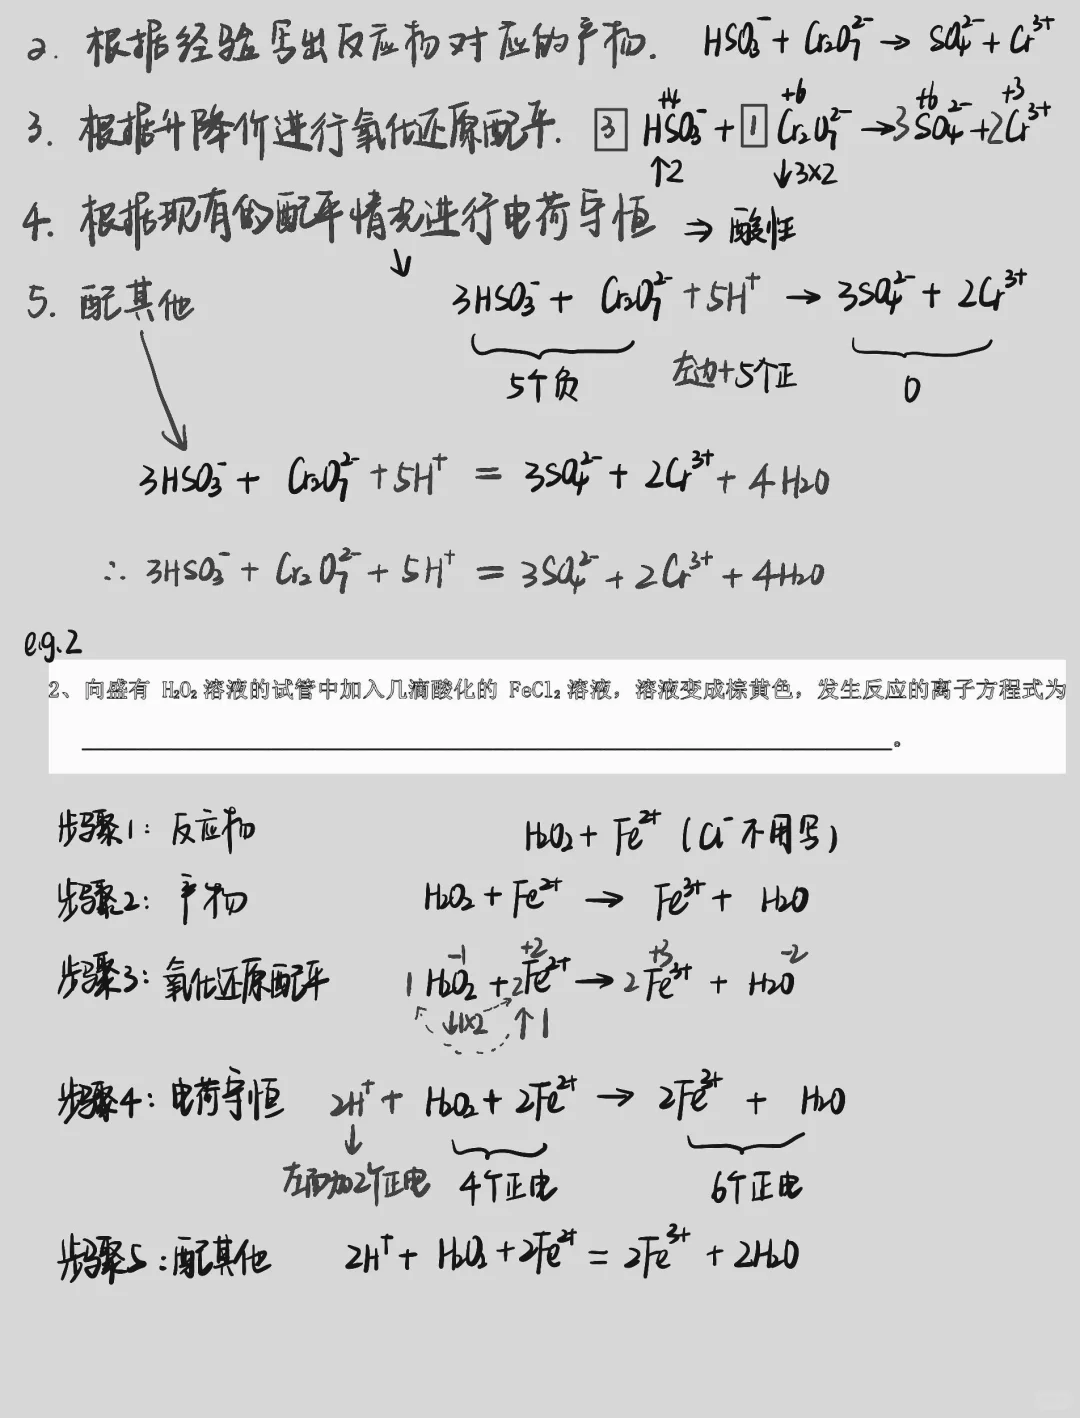 2. 根据经验写出反应物对应的产物. HSO₃⁻ + Cr₂O₇²⁻ → SO₄²⁻ + Cr³⁺
+4 +6 +6 +3
3. 根据升降价进行氧化还原配平. 3 HSO₃⁻ + 1 Cr₂O₇²⁻ → 3SO₄²⁻ + 2Cr³⁺
↑2 ↓3×2
4. 根据现有的配平情况进行电荷守恒 ⇒ 酸性
5. 配其他 3HSO₃⁻ + Cr₂O₇²⁻ + 5H⁺ → 3SO₄²⁻ + 2Cr³⁺
5个负 左边+5个正 0
3HSO₃⁻ + Cr₂O₇²⁻ + 5H⁺ = 3SO₄²⁻ + 2Cr³⁺ + 4H₂O
∴ 3HSO₃⁻ + Cr₂O₇²⁻ + 5H⁺ = 3SO₄²⁻ + 2Cr³⁺ + 4H₂O
eg.2
2、向盛有 H₂O₂ 溶液的试管中加入几滴酸化的 FeCl₂ 溶液，溶液变成棕黄色，发生反应的离子方程式为
。
步骤1: 反应物 H₂O₂ + Fe²⁺ (Cl⁻不用写)
步骤2: 产物 H₂O₂ + Fe²⁺ → Fe³⁺ + H₂O
-1 +2 +3 -2
步骤3: 氧化还原配平 1 H₂O₂ + 2Fe²⁺ → 2 Fe³⁺ + H₂O
↓1×2 ↑1
步骤4: 电荷守恒 2H⁺ + H₂O₂ + 2Fe²⁺ → 2Fe³⁺ + H₂O
左面加2个正电 4个正电 6个正电
步骤5: 配其他 2H⁺ + H₂O₂ + 2Fe²⁺ = 2Fe³⁺ + 2H₂O